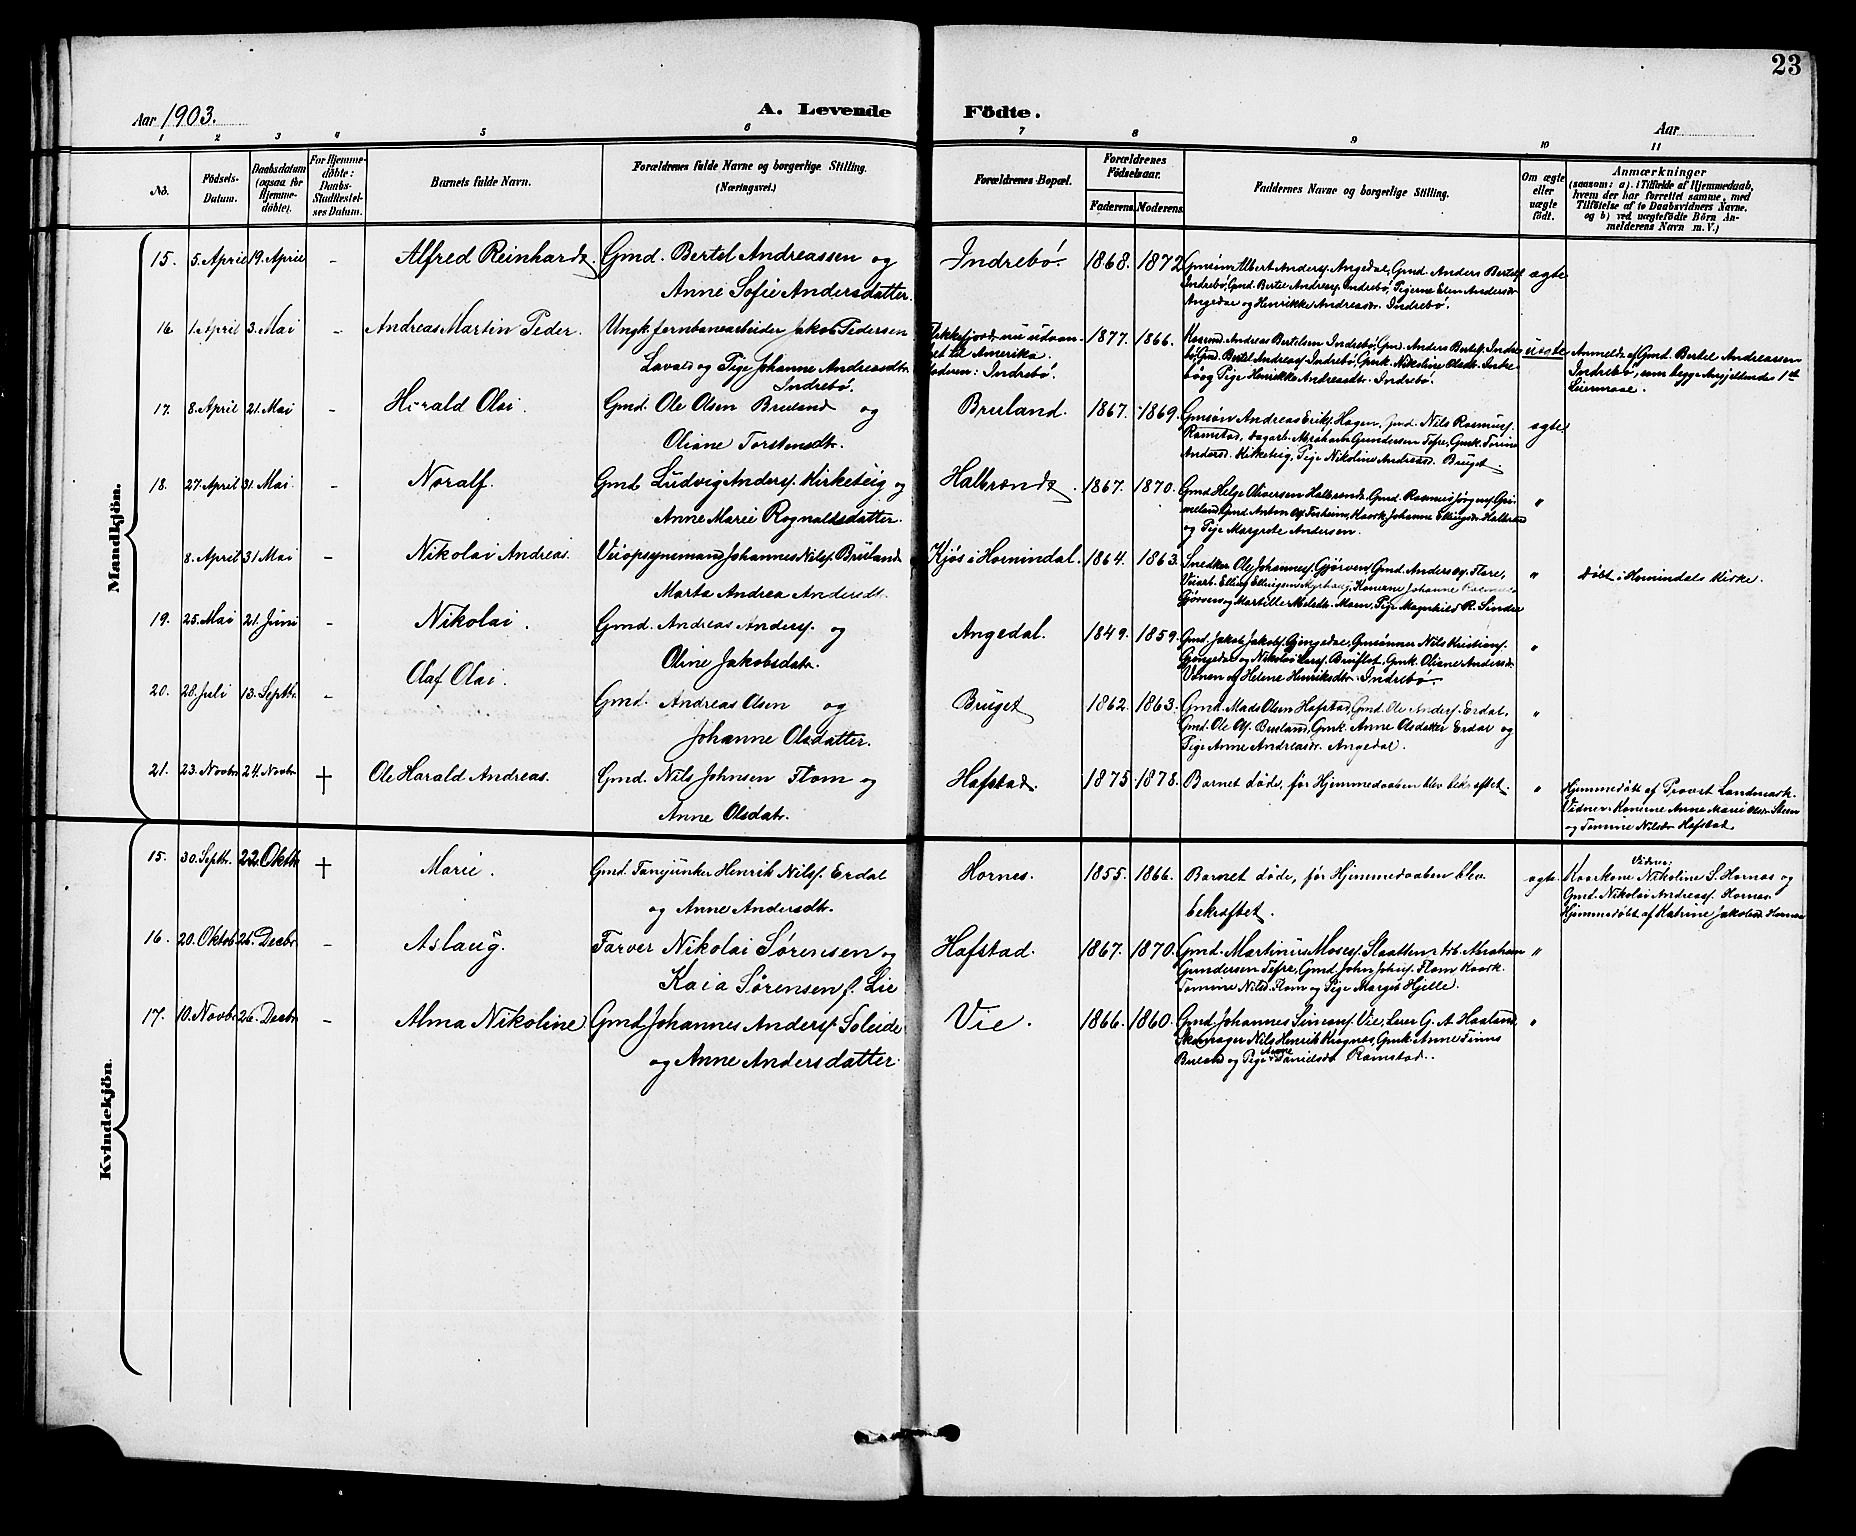 23
Aar 1903.
A. Levende Födte.
Aar
1 2 3 4 5 6 7 8 9 10 11
No.
Födsels-
Datum.
Daabsdatum
(ogsaa for
Hjemme-
döbte).
For Hjemme-
döbte:
Daabs-
Stadfæstel-
ses Datum.
Barnets fulde Navn.
Forældrenes fulde Navne og borgerlige Stilling.
(Næringsvei.)
Forældrenes Bopæl.
Forældrenes
Födselsaar.
Faderens. Moderens.
Faddernes Navne og borgerlige Stilling.
Om ægte
eller
uægte
födt.
Anmærkninger
(saasom: a). i Tilfælde af Hjemmedaab,
hvem der har forrettet samme, med
Tilföielse af to Daabsvidners Navne.
og b) ved uægtefödte Börn An-
melderens Navn m. V.)
Mandkjön.
15. 5. April 19. April - Alfred Reinhardt. Gmd. Bertel Andreassen og
Anne Sofie Andersdatter.
Indrebö. 1868. 1872
Gmsön Albert Anders. Angedal, Gmd. Anders Bertels.
Indrebö, Gmd. Bertel Andreas. Indrebö, Pigerne Elen Andersdr.
Angedal og Henrikke Andreasdr. Indrebö.
ægte
16. 1. April 3. Mai - Andreas Martin Peder. Ungk. Jernbanearbeider Jakob Pedersen
Lavold og Pige Johanne Andreasdtr.
Indrebö.
Flekkefjord, nu udvan-
dret til Amerika.
Moderen: Indrebö.
1877. 1866.
Andreas Bertelsen Indrebö, Gmd. Anders Bertels. Indre-
bö, Gmd. Bertel Andreas. Indrebö, Gmk. Nikoline Olsdr. Indre-
bö og Pige Henrikke Andreasdtr. Indrebö.
uægte
Anmeldt af Gmd. Bertel Andreassen
Indrebö, som begge Angjældendes 1ste
Leiermaal.
17. 8. April 21. Mai - Harald Olai. Gmd. Ole Olsen Bruland og
Oliane Torstensdtr.
Bruland. 1867. 1869.
Gmsön Andreas Eriks. Hagen, Gmd. Nils Rasmus.
Ramstad, Dagarb. Abraham Gundersen Tefre, Gmk. Torine
Andersd. Kirketeig, Pige Nikoline Andreasd. Bruget.
ægte.
18. 27. April 31. Mai - Noralf. Gmd. Ludvig Anders. Kirketeig og
Anne Marie Rognaldsdatter.
Halbrendt. 1867. 1870.
Gmd. Helge Oliversen Halbrendt, Gmd. Rasmus Jørgens. Gri-
meland, Gmd. Anton Ols. Fisheim, Kaark. Johanne Ellingsdr. Halbrend
og Pige Margrete Andersen.
"
8. April 31 Mai - Nikolai Andreas. Veiopsynsmand Johannes Nils. Bruland
Marta Andrea Andersdt.
Kjös i Hornindal. 1864. 1863.
Snedker Ole Johannes. Gjörven, Gmd. Anders Flore,
Veiarb. Elling Ellingsen Myrhaug, Konerne Johanne
Gjörven og Martille Meledtr. Moen, Pige Magnhild R. Sindre
"
Döbt i Hornindals Kirke.
19. 25. Mai 21. Juni - Nikolai. Gmd. Andreas Anders. og
Oline Jakobsdatr.
Angedal. 1849. 1859.
Gmd. Jakob Jakobs. Gjengedal, Gmsönner Nils Kristians.
Gjengedal og Nikolai Lars. Bruflot, Gmk. Oliane Andersdr.
Vonen og Helene Henriksdtr. Indrebö.
"
20. 28. Juli 13. Septbr. - Olaf Olai. Gmd. Andreas Olsen og
Johanne Olsdatter.
Bruget 1862. 1863.
Gmd. Mads Olsen Hafstad, Gmd. Ole Anders. Erdal,
Gmd. Ole Ols. Bruland, Gmk. Anne Olsdatter Erdal og
Pige Anne Andreasdr. Angedal.
"
21. 23. Novbr. 24. Novbr. † Ole Harald Andreas. Gmd. Nils Johnsen Flom og
Anne Olsdatr.
Hafstad. 1875 1878.
Barnet döde, för Hjemmedaaben blev bekræftet.
"
Hjemmedöbt af Provst Landmark.
Vidner: Konerne Anne Marie Olsdr. Steen
og Tomine Nilsdr. Hafstad.
Kvindekjön.
15. 30. Septbr. 22. Oktbr. † Marie. Gmd. Fanejunker Henrik Nils. Erdal
og Anne Andersdtr.
Hornes. 1855. 1866.
Barnet döde, för Hjemmedaaben blev
bekræftet.
ægte.
Vidner:
Kaarkone Nikoline S. Hornes og
Gmd. Nikolai Andreas. Hornes.
Hjemmedöbt af Katrine Jakobsd. Hornes
16. 20. Oktobr. 26. Decbr. - Aslaug. Farver Nikolai Sørensen og
Kaia Sørensen f. Lie
Hafstad. 1867. 1870.
Gmd. Martinus Moses. Slaatten, Arb. Abraham
Gundersen Tefre, Gmd. John Johns. Flom, Kaark.
Tomine Nilsd. Flom og Pige Marges Hjelle.
"
17. 10. Novbr. 26. Decbr. - Alma Nikoline Gmd. Johannes Anders. Soleide
og Anne Andersdatter.
Vie. 1866. 1860.
Gmd. Johannes Simons. Vie, Lærer G. A. Haaland,
Skomager Nils Henrik Krognæs, Gmk. Anne Finns
Bruland og Pige Anne Danielsdr. Ramstad.
"